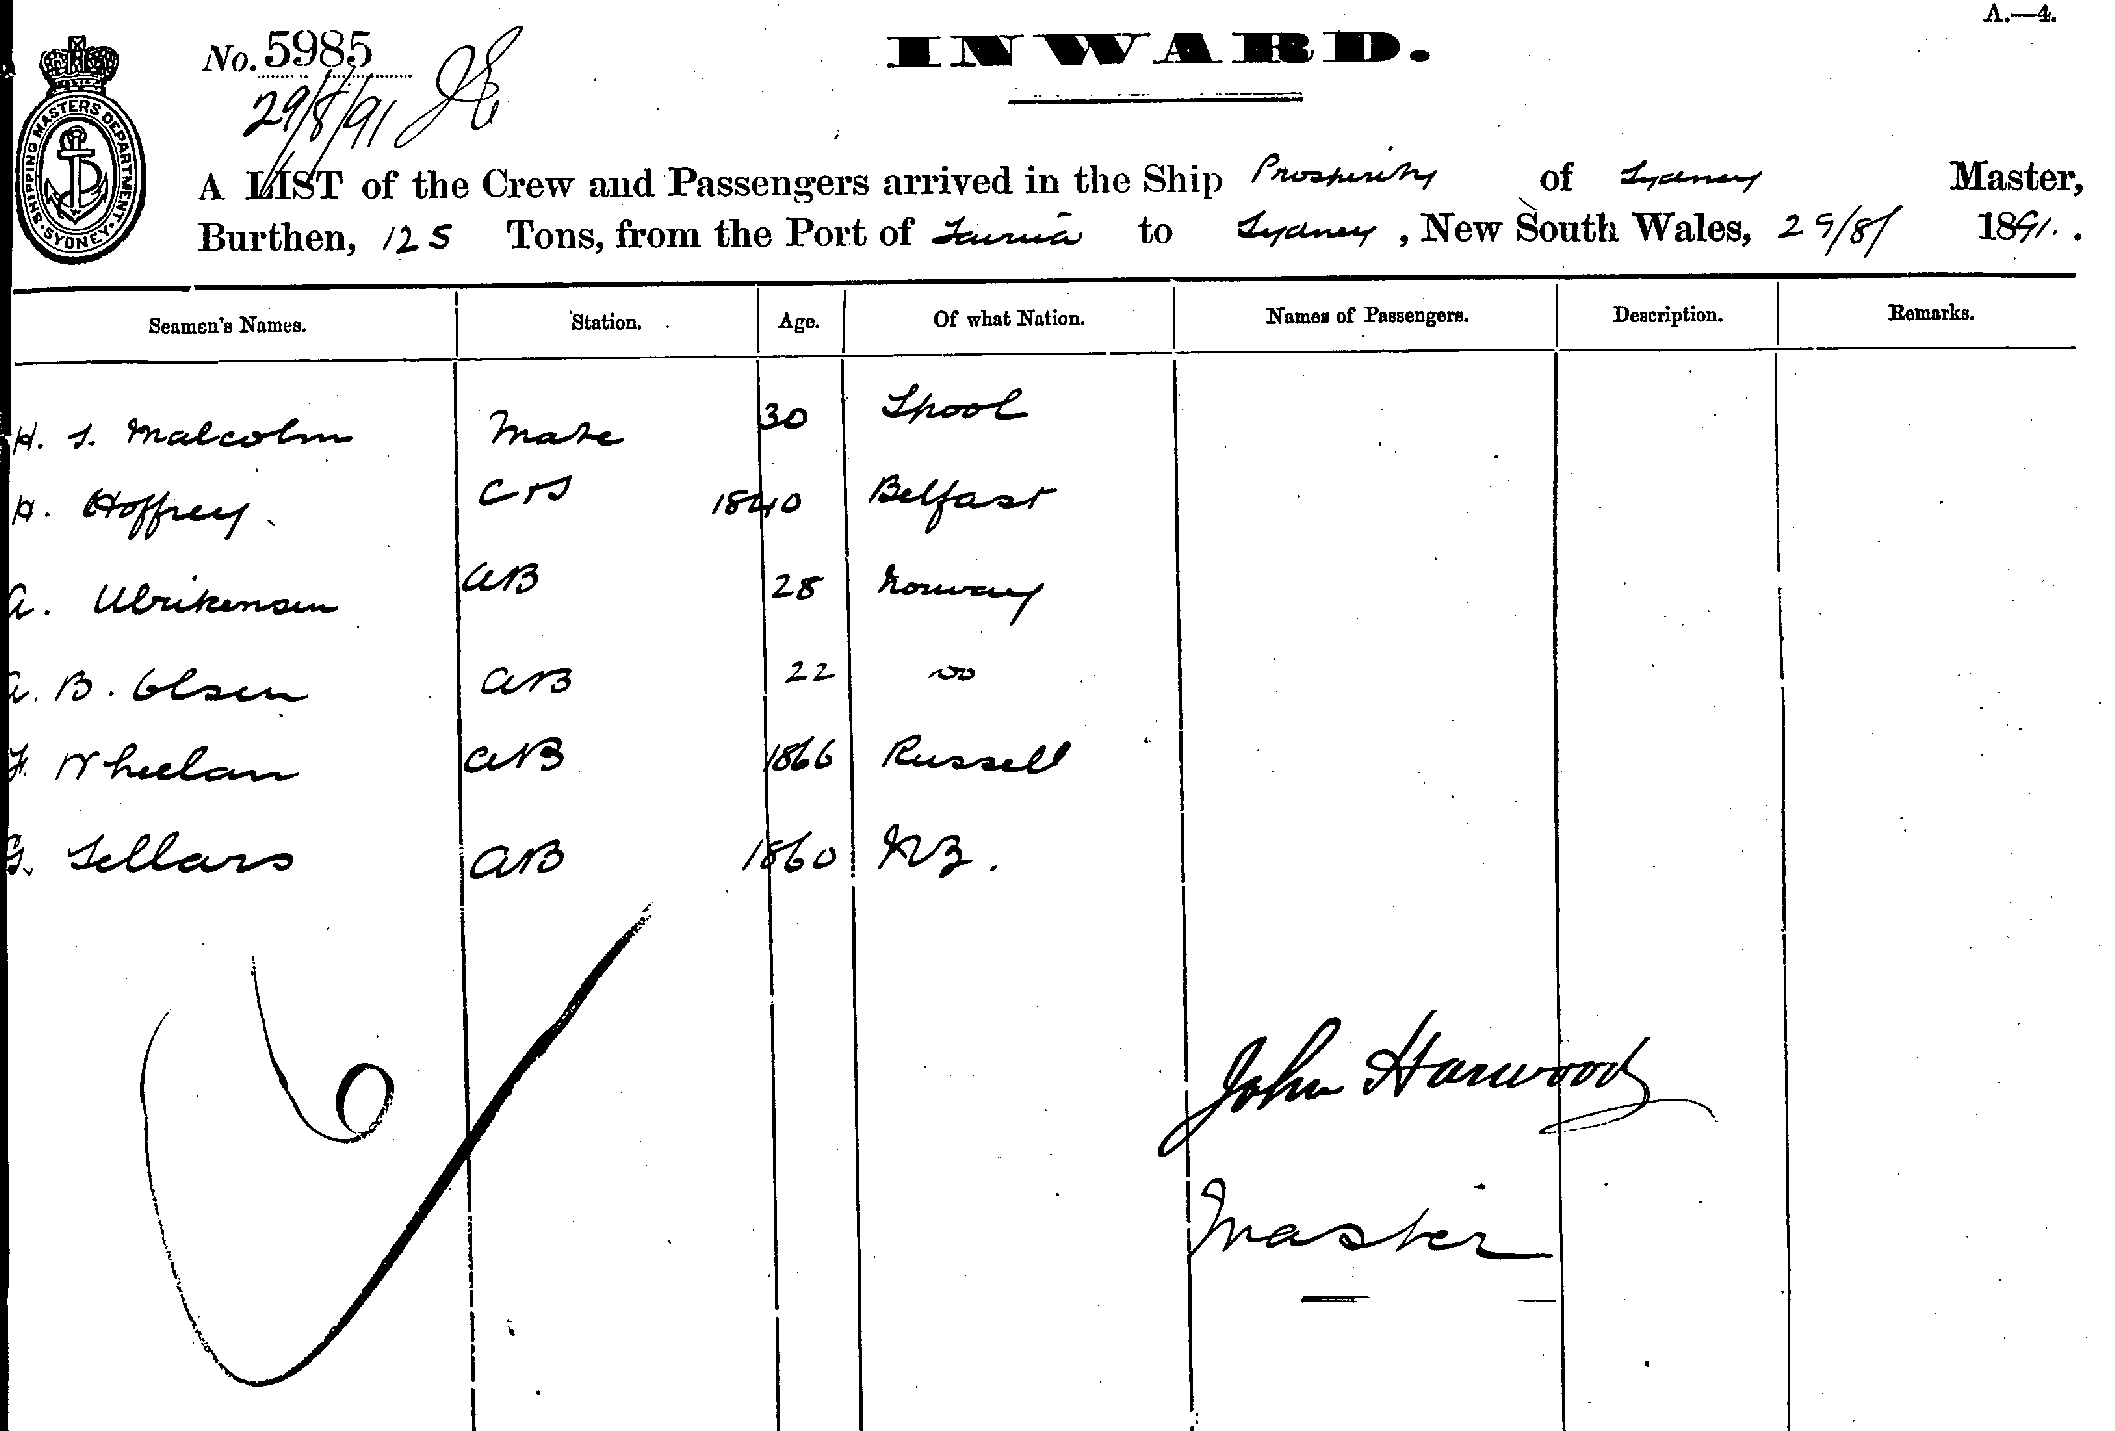 A.—4.
No. 5985
INWARD.
29/8/91
SHIPPING MASTERS DEPARTMENT SYDNEY
A LIST of the Crew and Passengers arrived in the Ship Prosperity of Sydney Master,
Burthen, 125 Tons, from the Port of to Sydney, New South Wales, 29/8/ 1891.
Seamen's Names. Station. Age. Of what Nation. Names of Passengers. Description. Remarks.
H. S. Malcolm Mate 30 Lpool
H. Hoffrey C & S 1840 Belfast
A. Ulrikensen AB 28 Norway
A. B. Olsen AB 22 do
F. Wheelan AB 1866 Russell
G. Sellars AB 1860 NZ.
6
John Harwood
Master